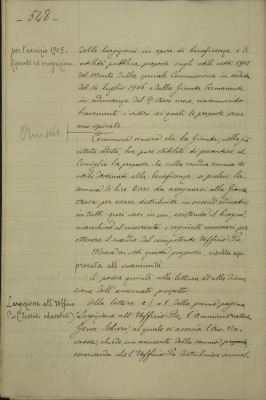 - 548 -
per l'esercizio 1905.
Riparto ed erogazioni
delle largizioni in opere di beneficenza e di
utilità pubblica proposte sugli utili netti 1905
del Monte dalla speciale Commissione in seduta
del 16 luglio 1906 e dalla Giunta Permanente
in adunanza del 4 stesso mese, riassumendo
brevemente i criteri ai quali le proposte sono
Omissis
Comunica ancora che la Giunta nella
citata seduta, ha pure stabilito di presentare al
Consiglio la proposta che sulla residua somma di
utili destinati alla beneficenza, si prelevi la
somma di lire 2000 da assegnarsi alla Giunta
stessa per essere distribuita in sussidi
in tutti quei casi in cui, esistendo il bisogno,
manchino al ricorrente i requisiti necessari per
ottenere il sussidio dal competente Ufficio Pio.
Messa ai voti questa proposta, risulta ap-
provata all'unanimità.
Si passa quindi alla lettura ed alla discus-
sione dell'accennato progetto.
Largizione all'Ufficio
Pio (Sussidi educativi)
Alla lettera della prima pagina
"Largizione all'Ufficio Pio, l'Amministratore
al quale si associa l'Avv.
chiede un aumento della somma proposta
osservando che l'Ufficio Pio distribuisce